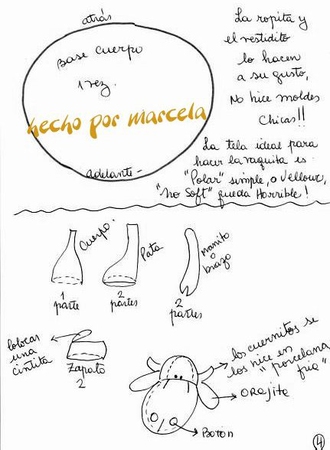 atrás
Base cuerpo
1 vez.
hecho por marcela
adelante-
La ropita y
el vestidito
lo hacen
a su gusto,
No hice moldes
chicas!!
La tela ideal para
hacer la vaquita es
"Polar" simple, o Vellour,
"no Soft" queda Horrible!
Cuerpo.
1
parte
Pata
2
partes
manito
o
brazo
2
partes
colocar
una
cintita
Zapato
2
los cuernitos se
los hice en
"porcelana
fria"
orejita
Boton
4